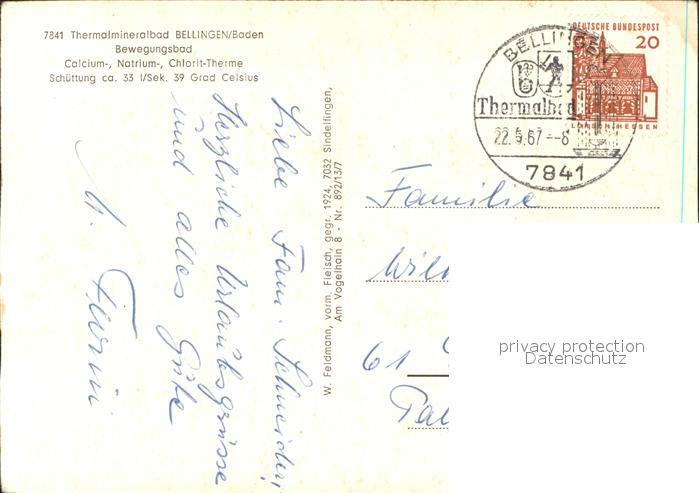 7841 Thermalmineralbad BELLINGEN/Baden
Bewegungsbad
Calcium-, Natrium-, Chlorit-Therme
Schüttung ca. 33 l/Sek. 39 Grad Celsius
Liebe Fam. Schneider,
Herzliche Urlaubsgrüsse
und alles Gute
W. Feldmann, vorm. Fleisch, gegr. 1924, 7032 Sindelfingen,
Am Vogelhain 8 - Nr. 892/13/7
DEUTSCHE BUNDESPOST
20
LORSCH/HESSEN
BELLINGEN
Thermalbad
22.5.67--8
7841
Familie
Wil
61
privacy protection
Datenschutz